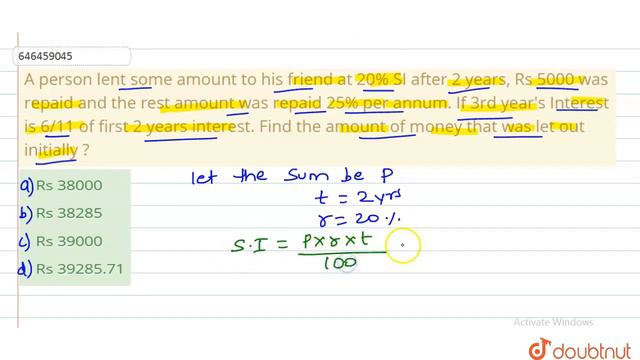 646459045
A person lent some amount to his friend at 20% SI after 2 years, Rs 5000 was
repaid and the rest amount was repaid 25% per annum. If 3rd year's Interest
is 6/11 of first 2 years interest. Find the amount of money that was let out
initially ?
a) Rs 38000
b) Rs 38285
c) Rs 39000
d) Rs 39285.71
let the sum be P
t = 2 yrs
r = 20 %
S.I = P x r x t
100
Activate Windows
doubtnut